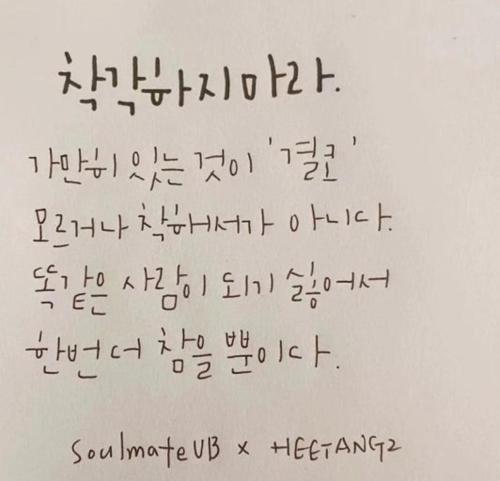 착각하지마라.
가만히 있는 것이 '결코'
모르거나 착해서가 아니다.
똑같은 사람이 되기 싫어서
한번 더 참을 뿐이다.
SoulmateUB x HEETANG2